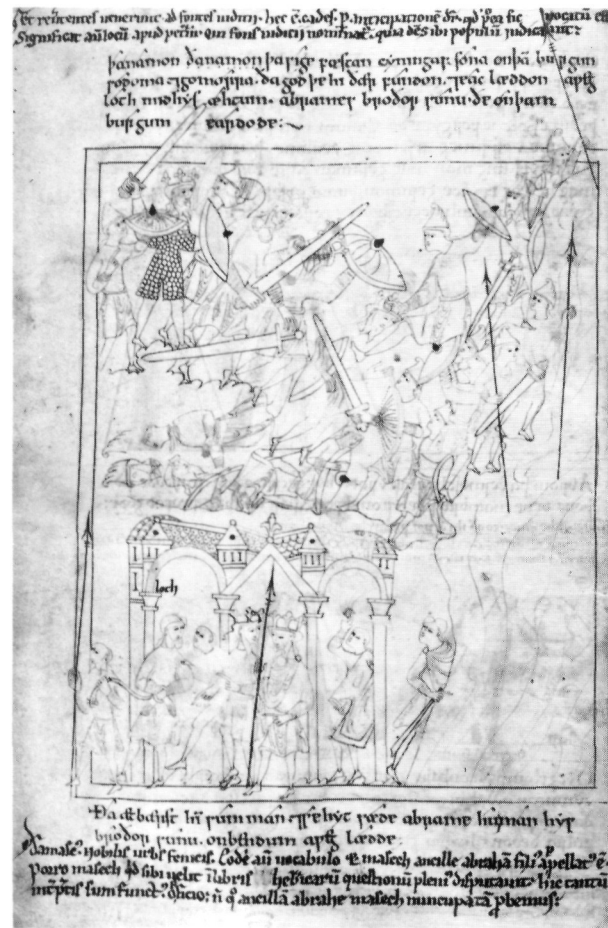 Et reuertentes uenerunt ad fontē iudicii. hec ē cades. P̱ anticipationē dr̄. qd̄ p⁹ea sic uocitū ē
Significat aū locū apud petrā qui fons iudicii nominat᷑. quia dēs ibi populū iudicauit:
þanamon ðanamon þa sige fæstan cyningas sona onþā burgum
sodoma ⁊ gomorra. ða god þe hi ðær fundon. ⁊ eac læddon apeg
loth mid hys æhtum. abrames broðor sunu. ðe onþam
burgum eardode:
loth
Ða ætbærst hī sum man ⁊ se hyt sæde abrame hu man hys
broðor sunu. on bendum apeg lædde.
damasc⁹. nobilis urbs fenicis. Eodē aū uocabulo & masech ancille abrahā fili⁹ apellat⁹ ē.
Porro masech qd̄ sibi uelit ī libris hebraicarū questionū pleni⁹ disputauit. hic tantū
int̄p̄tis sum funct⁹ officio: ancillā abrahe masech nuncupatā